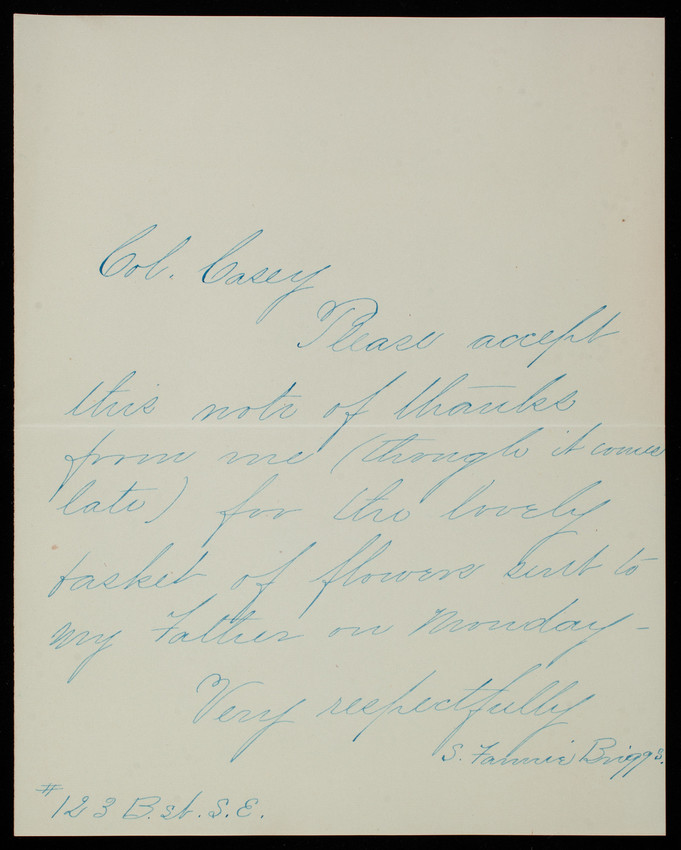 Col. Casey
Please accept
this note of thanks
from me (though it comes
late) for the lovely
basket of flowers sent to
my Father on Monday -
Very respectfully
S. Fannie Briggs.
# 123 B. st. S.E.